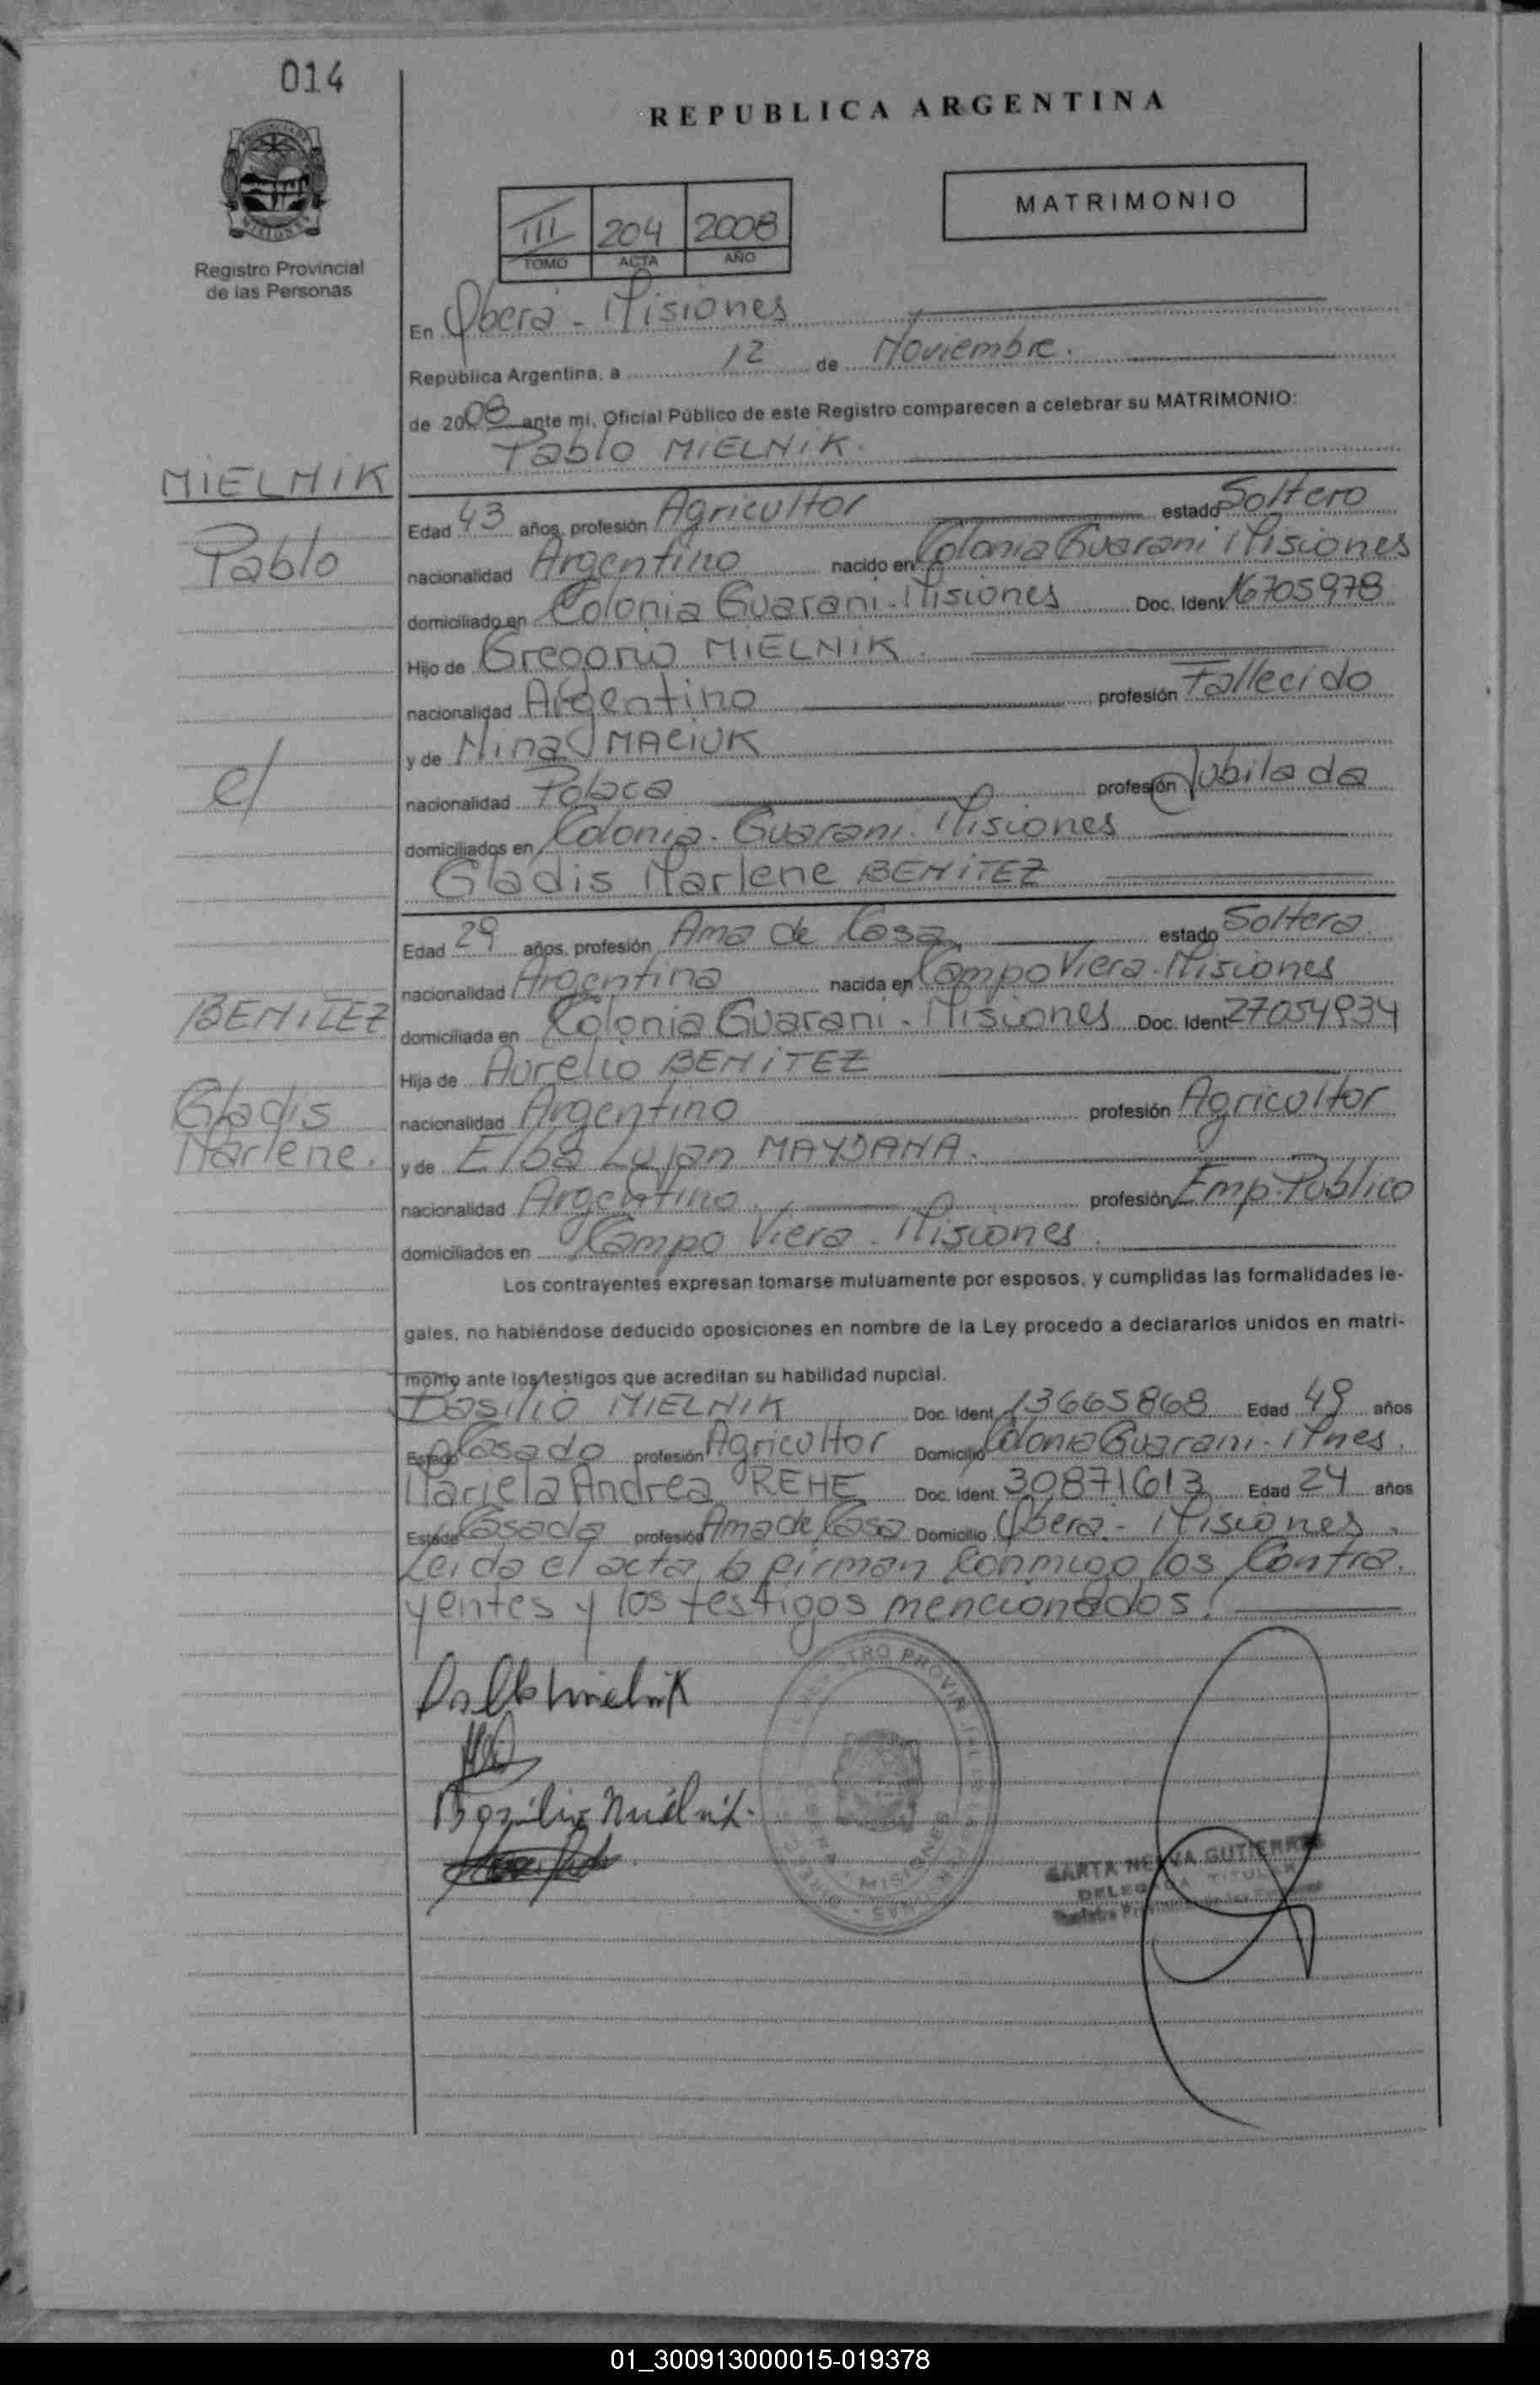 014
REPUBLICA ARGENTINA
MATRIMONIO
III 204 2008
TOMO ACTA AÑO
Registro Provincial
de las Personas
En Oberá - Misiones
República Argentina, a 12 de Noviembre.
de 2008 ante mi, Oficial Público de este Registro comparecen a celebrar su MATRIMONIO:
Pablo MIELNIK.
MIELNIK
Pablo
Edad 43 años, profesión Agricultor estado Soltero
nacionalidad Argentino nacido en Colonia Guarani Misiones
domiciliado en Colonia Guarani - Misiones Doc. Ident. 16705978
Hijo de Gregorio MIELNIK.
nacionalidad Argentino profesión Fallecido
y de Nina MACIUK
c/
nacionalidad Polaca profesión Jubilada
domiciliados en Colonia - Guarani - Misiones
Gladis Marlene BENITEZ
Edad 29 años, profesión Ama de Casa estado Soltera
nacionalidad Argentina nacida en Campo Viera - Misiones
BENITEZ
Gladis
Marlene.
domiciliada en Colonia Guarani - Misiones Doc. Ident. 27054934
Hija de Aurelio BENITEZ
nacionalidad Argentino profesión Agricultor
y de Elba Lujan MAYDANA.
nacionalidad Argentina profesión Emp. Publico
domiciliados en Campo Viera - Misiones.
Los contrayentes expresan tomarse mutuamente por esposos, y cumplidas las formalidades le-
gales, no habiéndose deducido oposiciones en nombre de la Ley procedo a declararlos unidos en matri-
monio ante los testigos que acreditan su habilidad nupcial.
Basilio MIELNIK Doc. Ident. 13665868 Edad 49 años
Estado Casado profesión Agricultor Domicilio Colonia Guarani - Mnes.
Mariela Andrea REHE Doc. Ident. 30871613 Edad 24 años
Estado Casada profesión Ama de Casa Domicilio Oberá - Misiones.
Leida el acta, la firman conmigo los Contra-
yentes y los testigos mencionados.
Pablo Mielnik
Bazilio Mielnik.
MISIONES
MARTA NELVA GUTIERREZ
DELEGADA TITULAR
01_300913000015-019378